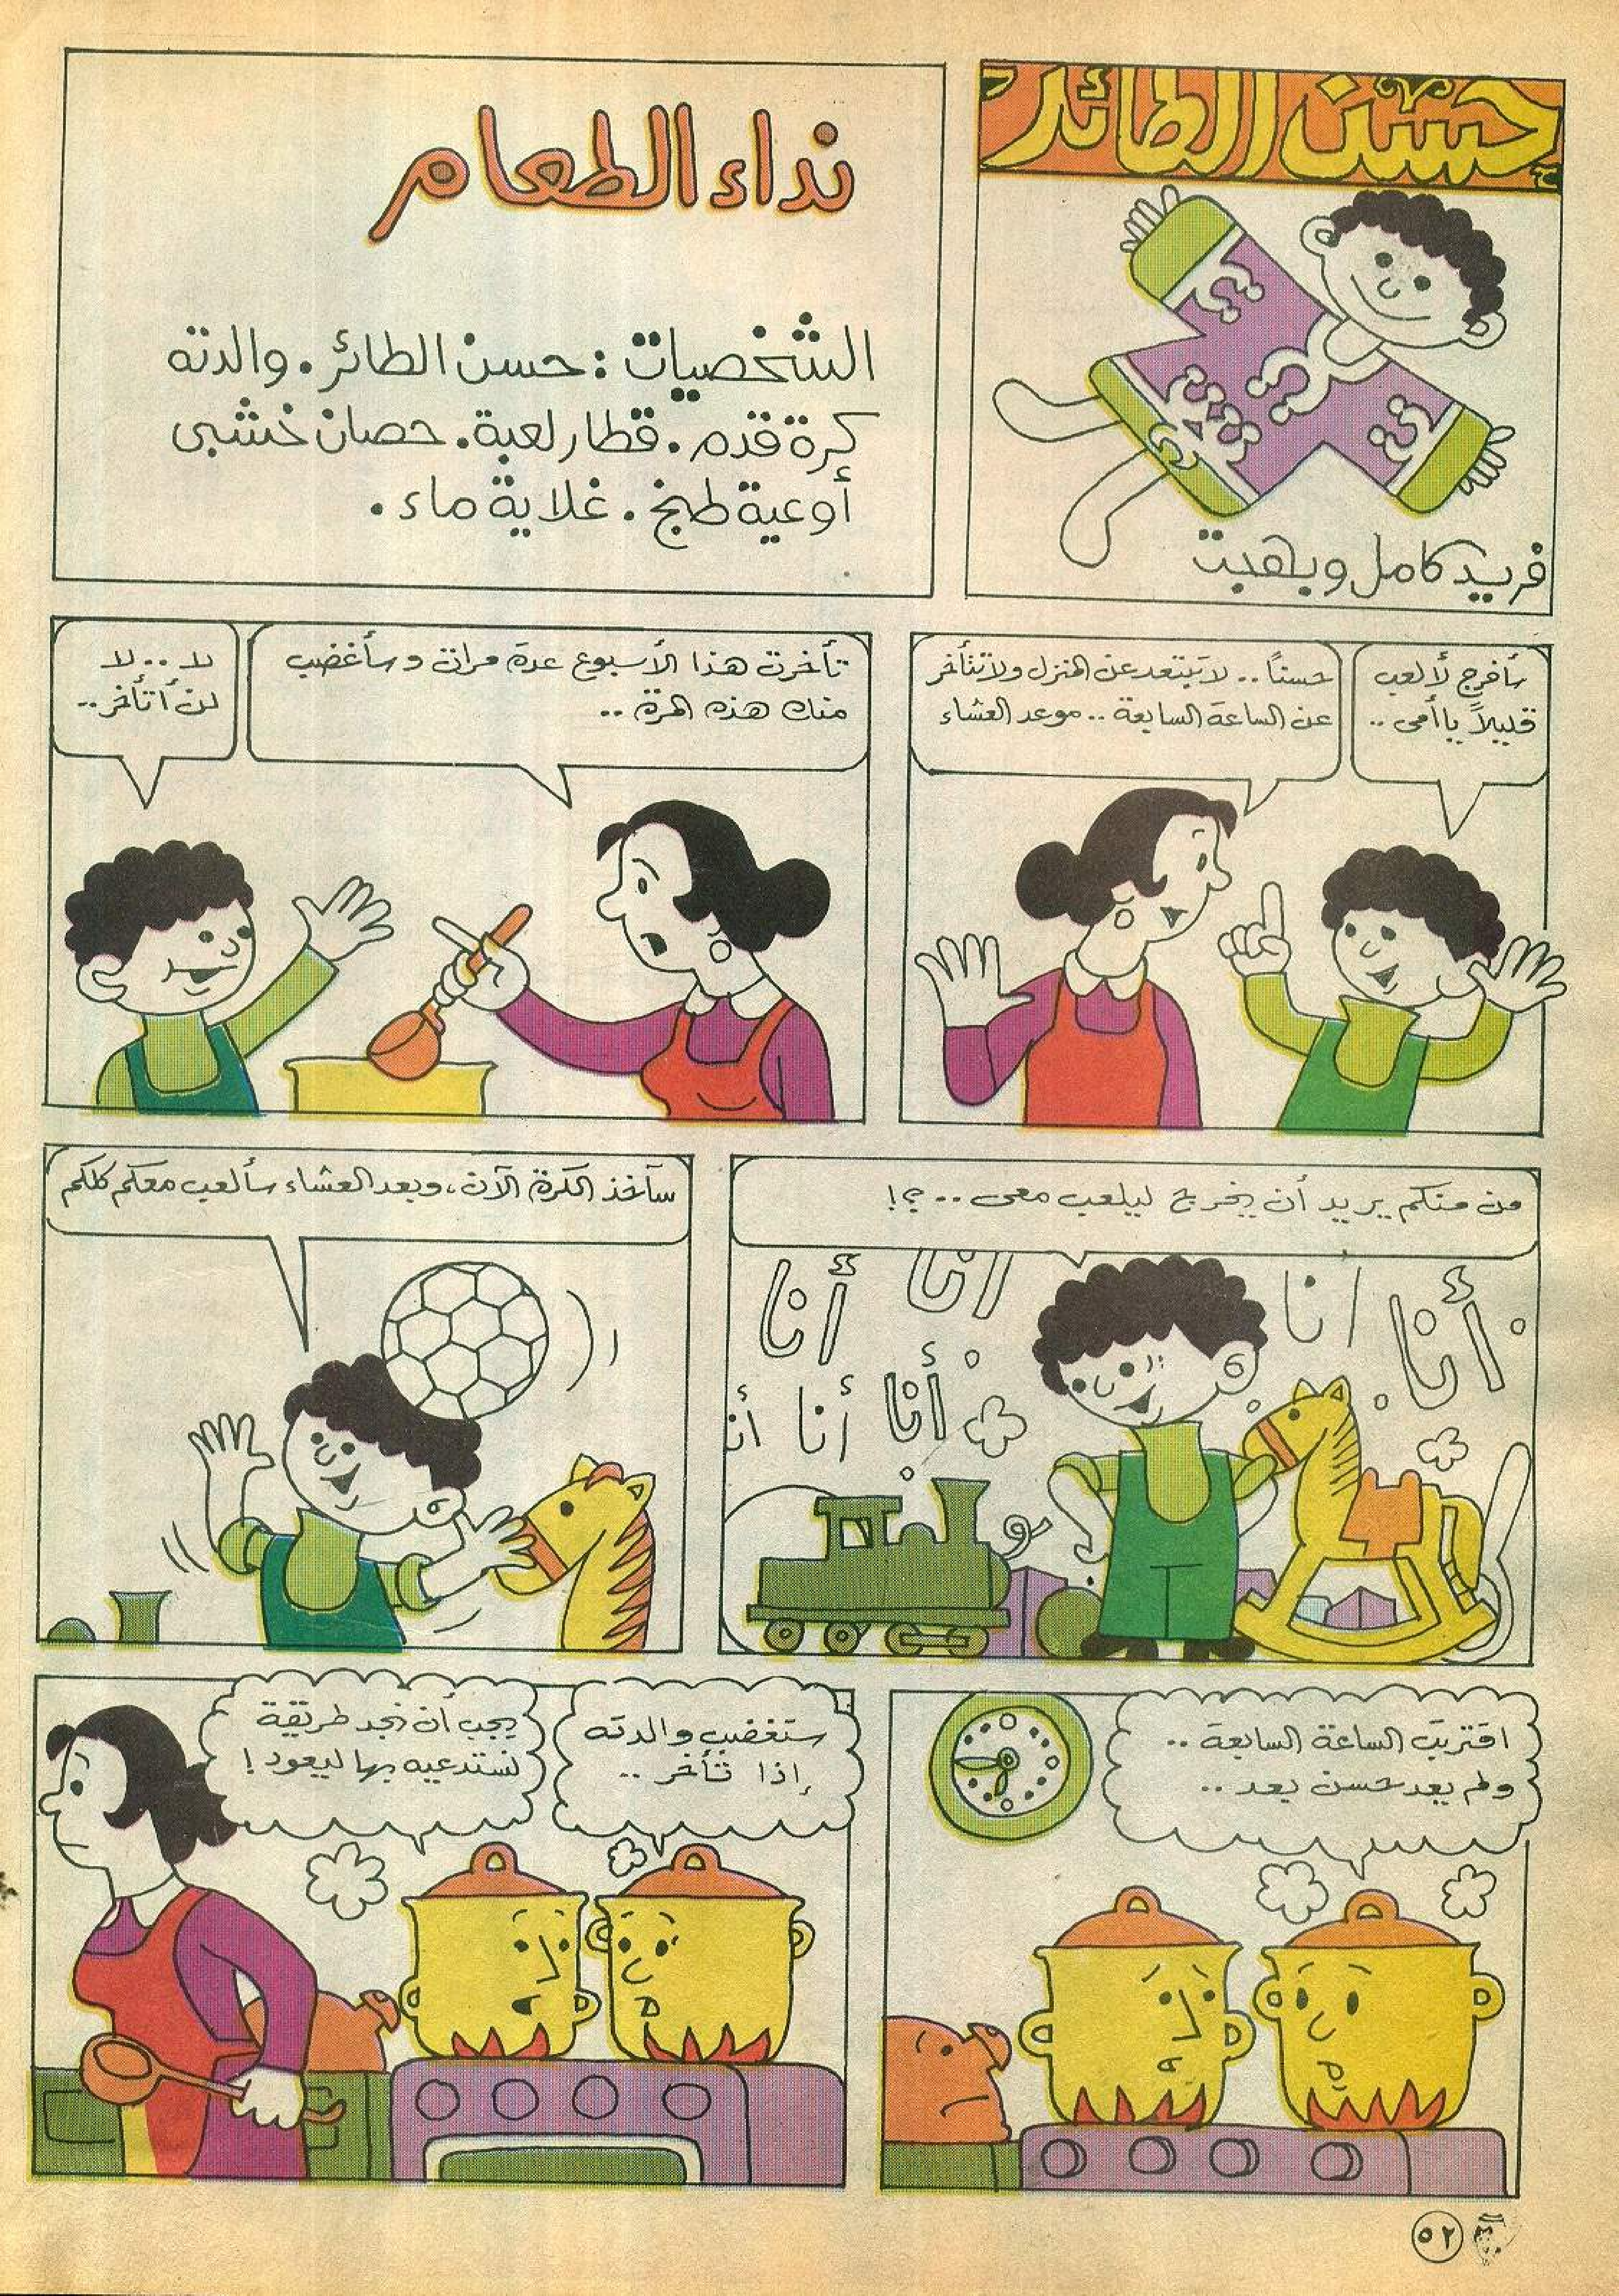 حسن الطائر
فريد كامل وبهجت
نداء الطعام
الشخصيات : حسن الطائر . والدته
كرة قدم . قطار لعبة . حصان خشبى
أوعية طبخ . غلاية ماء .
سأخرج لألعب
قليلاً يا أمى ..
حسناً .. لا تبتعد عن المنزل ولا تتأخر
عن الساعة السابعة .. موعد العشاء
تأخرت هذا الأسبوع عدة مرات وسأغضب
منك هذه المرة ..
لا .. لا
لن أتأخر ..
من منكم يريد أن يخرج ليلعب معى .. ؟!
أنا
انا
انا
أنا
أنا
أنا
أنا
سآخذ الكرة الآن ، وبعد العشاء سألعب معكم كلكم
اقتربت الساعة السابعة ..
ولم يعد حسن بعد ..
ستغضب والدته
إذا تأخر ..
يجب أن نجد طريقة
نستدعيه بها ليعود !
٥٢